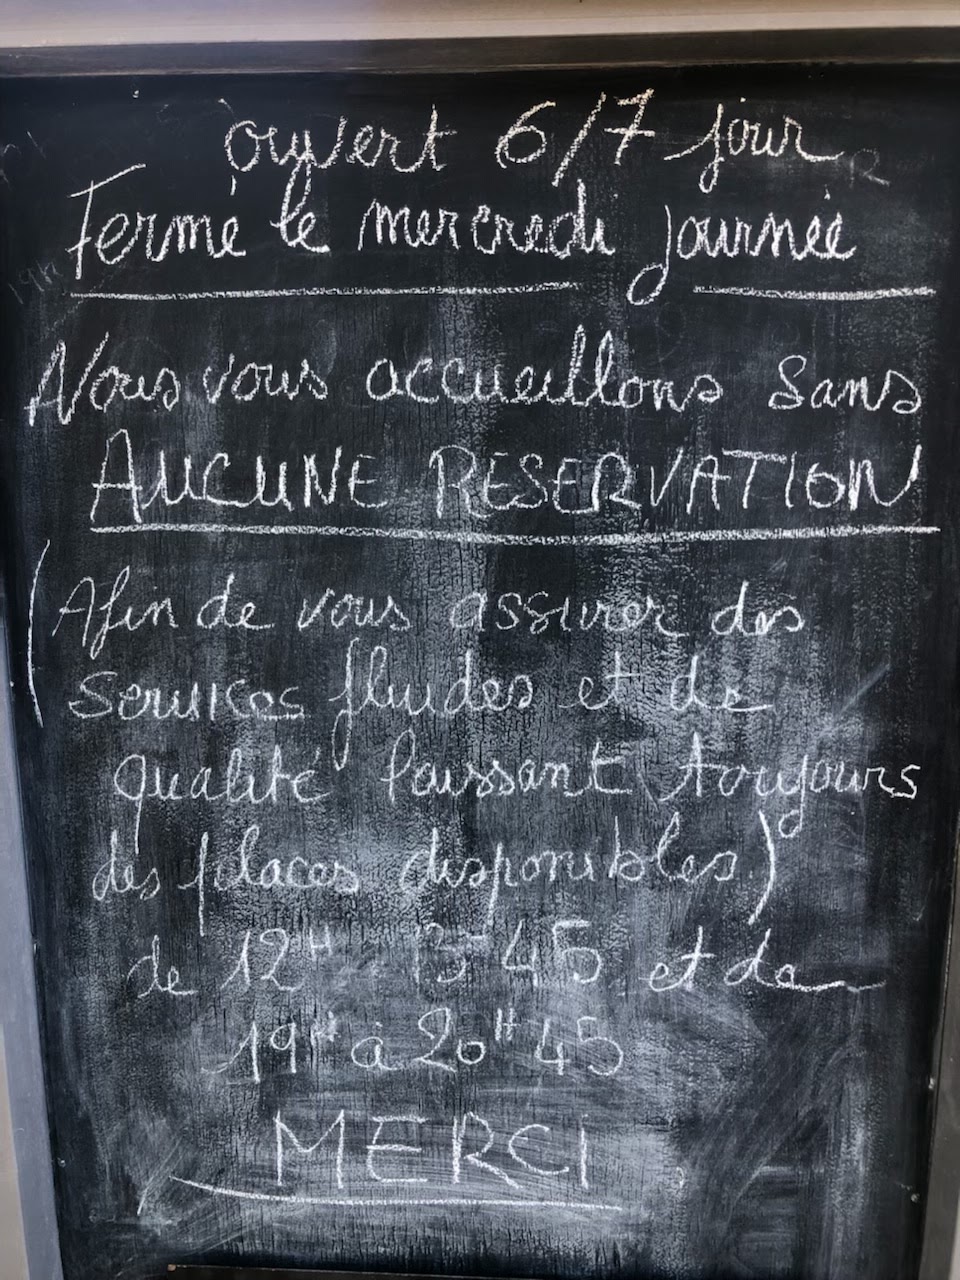 ouvert 6/7 jour
Fermé le mercredi journée
Nous vous accueillons sans
AUCUNE RESERVATION
(Afin de vous assurer des
services fluides et de
qualité laissant toujours
des places disponibles)
de 12H 13H45 et de
19H à 20H45
MERCI